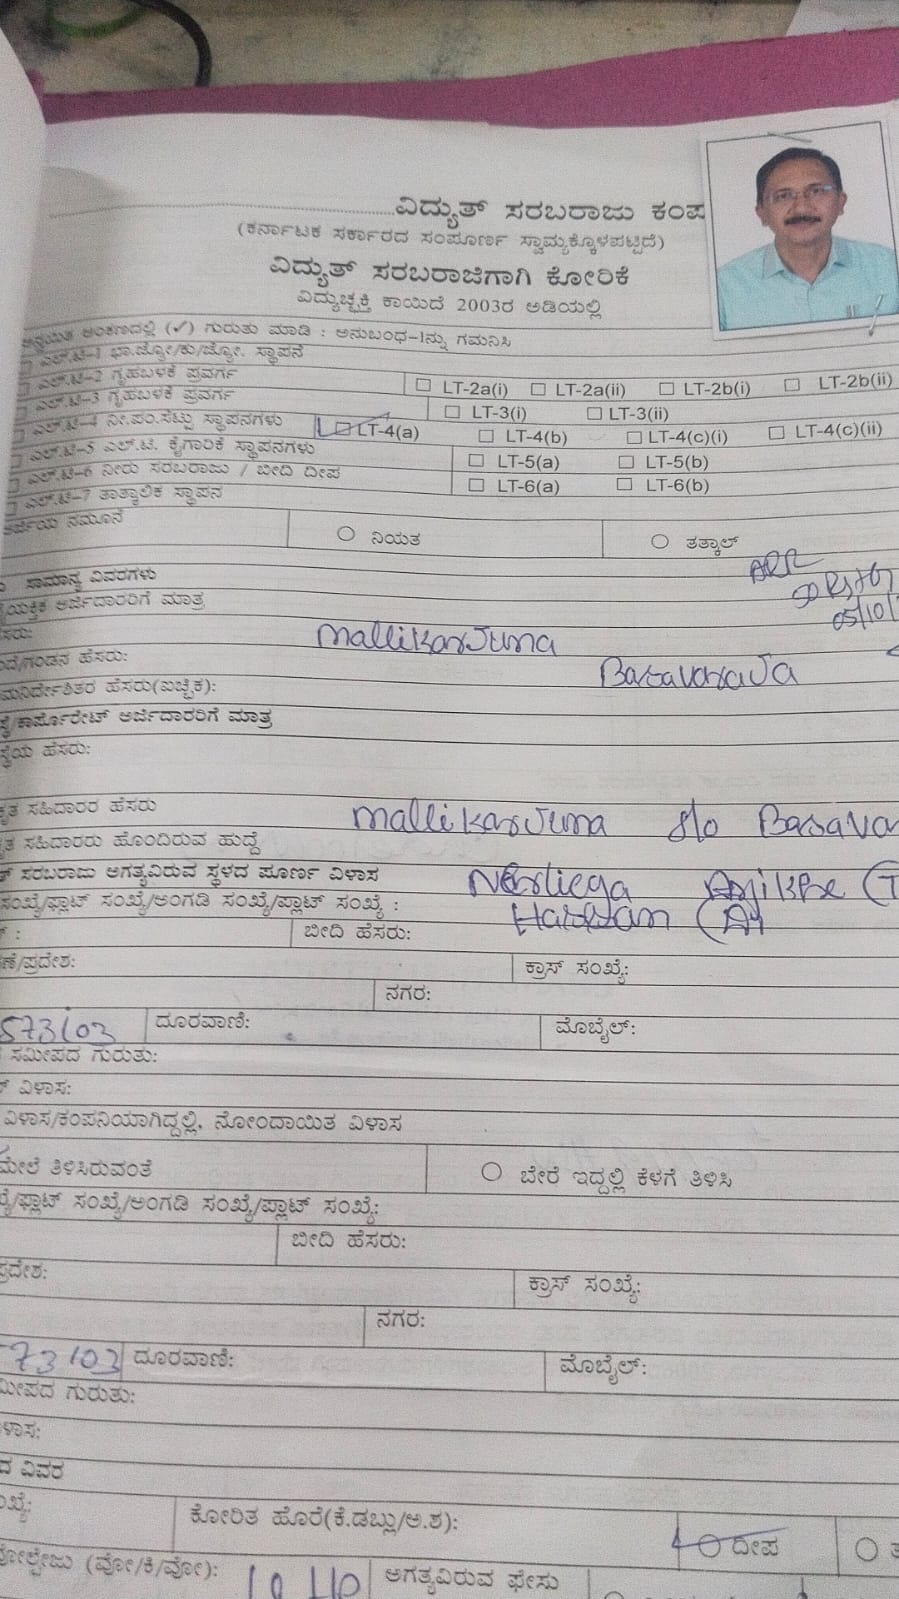 ವಿದ್ಯುತ್ ಸರಬರಾಜು ಕಂಪ
(ಕರ್ನಾಟಕ ಸರ್ಕಾರದ ಸಂಪೂರ್ಣ ಸ್ವಾಮ್ಯಕ್ಕೊಳಪಟ್ಟಿದೆ)
ವಿದ್ಯುತ್ ಸರಬರಾಜಿಗಾಗಿ ಕೋರಿಕೆ
ವಿದ್ಯುಚ್ಛಕ್ತಿ ಕಾಯಿದೆ 2003ರ ಅಡಿಯಲ್ಲಿ
ಅಂಕಣದಲ್ಲಿ (✓) ಗುರುತು ಮಾಡಿ : ಅನುಬಂಧ-1ನ್ನು ಗಮನಿಸಿ
ಎಲ್.ಟಿ-1 ಭಾ.ಜ್ಯೋ/ಕು/ಜ್ಯೋ. ಸ್ಥಾಪನೆ
ಎಲ್.ಟಿ-2 ಗೃಹಬಳಕೆ ಪ್ರವರ್ಗ LT-2a(i) LT-2a(ii) LT-2b(i) LT-2b(ii)
ಎಲ್.ಟಿ-3 ಗೃಹಬಳಕೆ ಪ್ರವರ್ಗ LT-3(i) LT-3(ii)
ಎಲ್.ಟಿ-4 ನೀ.ಪಂ.ಸೆಟ್ಟು ಸ್ಥಾಪನಗಳು LT-4(a) LT-4(b) LT-4(c)(i) LT-4(c)(ii)
ಎಲ್.ಟಿ-5 ಎಲ್.ಟಿ. ಕೈಗಾರಿಕೆ ಸ್ಥಾಪನಗಳು LT-5(a) LT-5(b)
ಎಲ್.ಟಿ-6 ನೀರು ಸರಬರಾಜು / ಬೀದಿ ದೀಪ LT-6(a) LT-6(b)
ಎಲ್.ಟಿ-7 ತಾತ್ಕಾಲಿಕ ಸ್ಥಾಪನ
ಅರ್ಜಿಯ ನಮೂನೆ ನಿಯತ ತತ್ಕಾಲ್
ಸಾಮಾನ್ಯ ವಿವರಗಳು
ಅರ್ಜಿದಾರರಿಗೆ ಮಾತ್ರ
05/10/
ಹೆಸರು: Mallikarjuna
ಗಂಡನ ಹೆಸರು: Basavaraja
ಹೆಸರು(ಐಚ್ಛಿಕ):
ಕಾರ್ಪೊರೇಟ್ ಅರ್ಜಿದಾರರಿಗೆ ಮಾತ್ರ
ಹೆಸರು:
ಸಹಿದಾರರ ಹೆಸರು Mallikarjuna S/o Basava
ಸಹಿದಾರರು ಹೊಂದಿರುವ ಹುದ್ದೆ
ಸರಬರಾಜು ಅಗತ್ಯವಿರುವ ಸ್ಥಳದ ಪೂರ್ಣ ವಿಳಾಸ
ಸಂಖ್ಯೆ/ಫ್ಲಾಟ್ ಸಂಖ್ಯೆ/ಅಂಗಡಿ ಸಂಖ್ಯೆ/ಪ್ಲಾಟ್ ಸಂಖ್ಯೆ :
ಬೀದಿ ಹೆಸರು:
ಪ್ರದೇಶ: ಕ್ರಾಸ್ ಸಂಖ್ಯೆ:
ನಗರ:
573103 ದೂರವಾಣಿ: ಮೊಬೈಲ್:
ಸಮೀಪದ ಗುರುತು:
ವಿಳಾಸ:
ವಿಳಾಸ/ಕಂಪನಿಯಾಗಿದ್ದಲ್ಲಿ, ನೋಂದಾಯಿತ ವಿಳಾಸ
ಮೇಲೆ ತಿಳಿಸಿರುವಂತೆ ಬೇರೆ ಇದ್ದಲ್ಲಿ ಕೆಳಗೆ ತಿಳಿಸಿ
ಫ್ಲಾಟ್ ಸಂಖ್ಯೆ/ಅಂಗಡಿ ಸಂಖ್ಯೆ/ಪ್ಲಾಟ್ ಸಂಖ್ಯೆ:
ಬೀದಿ ಹೆಸರು:
ಪ್ರದೇಶ: ಕ್ರಾಸ್ ಸಂಖ್ಯೆ:
ನಗರ:
73103 ದೂರವಾಣಿ: ಮೊಬೈಲ್:
ಗುರುತು:
ವಿವರ
ಕೋರಿತ ಹೊರೆ(ಕೆ.ಡಬ್ಲು/ಅ.ಶ): ದೀಪ
(ವೋ/ಕಿ/ವೋ): 10 HP ಅಗತ್ಯವಿರುವ ಫೇಸು